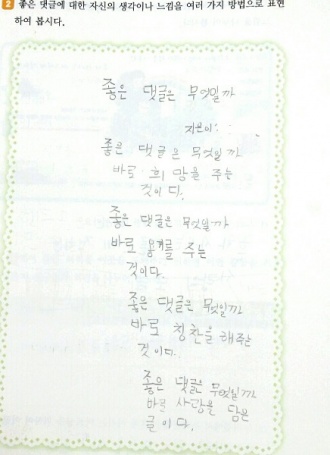 2 좋은 댓글에 대한 자신의 생각이나 느낌을 여러 가지 방법으로 표현
하여 봅시다.
좋은 댓글은 무엇일까
지은이:
좋은 댓글은 무엇일까
바로 희망을 주는
것이다.
좋은 댓글은 무엇일까
바로 용기를 주는
것이다.
좋은 댓글은 무엇일까
바로 칭찬을 해주는
것이다.
좋은 댓글은 무엇일까
바로 사랑을 담은
글이다.